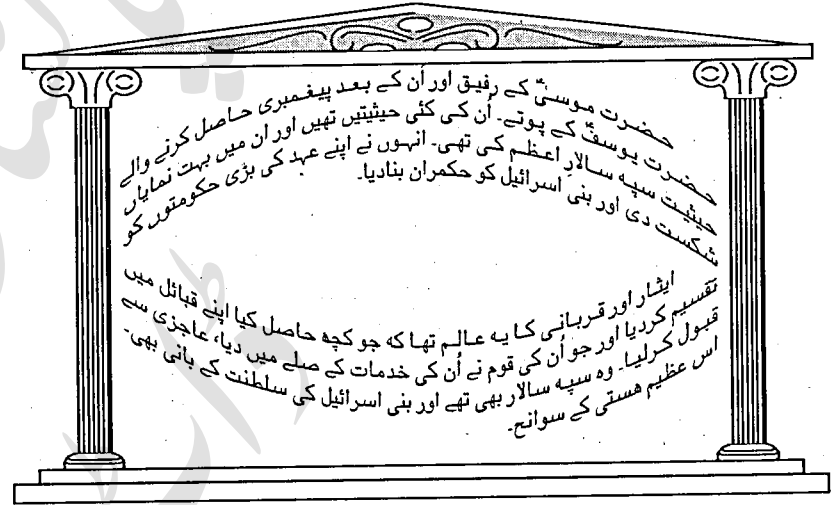 حضرت موسیٰؑ کے رفیق اور اُن کے بعد پیغمبری حاصل کرنے والے
حضرت یوسفؑ کے پوتے۔ اُن کی کئی حیثیتیں تھیں اور ان میں بہت نمایاں
حیثیت سپہ سالارِ اعظم کی تھی۔ انہوں نے اپنے عہد کی بڑی حکومتوں کو
شکست دی اور بنی اسرائیل کو حکمران بنادیا۔
ایثار اور قربانی کا یہ عالم تھا کہ جو کچھ حاصل کیا اپنے قبائل میں
تقسیم کردیا اور جو اُن کی قوم نے اُن کی خدمات کے صلے میں دیا، عاجزی سے
قبول کرلیا۔ وہ سپہ سالار بھی تھے اور بنی اسرائیل کی سلطنت کے بانی بھی۔
اس عظیم ھستی کے سوانح۔